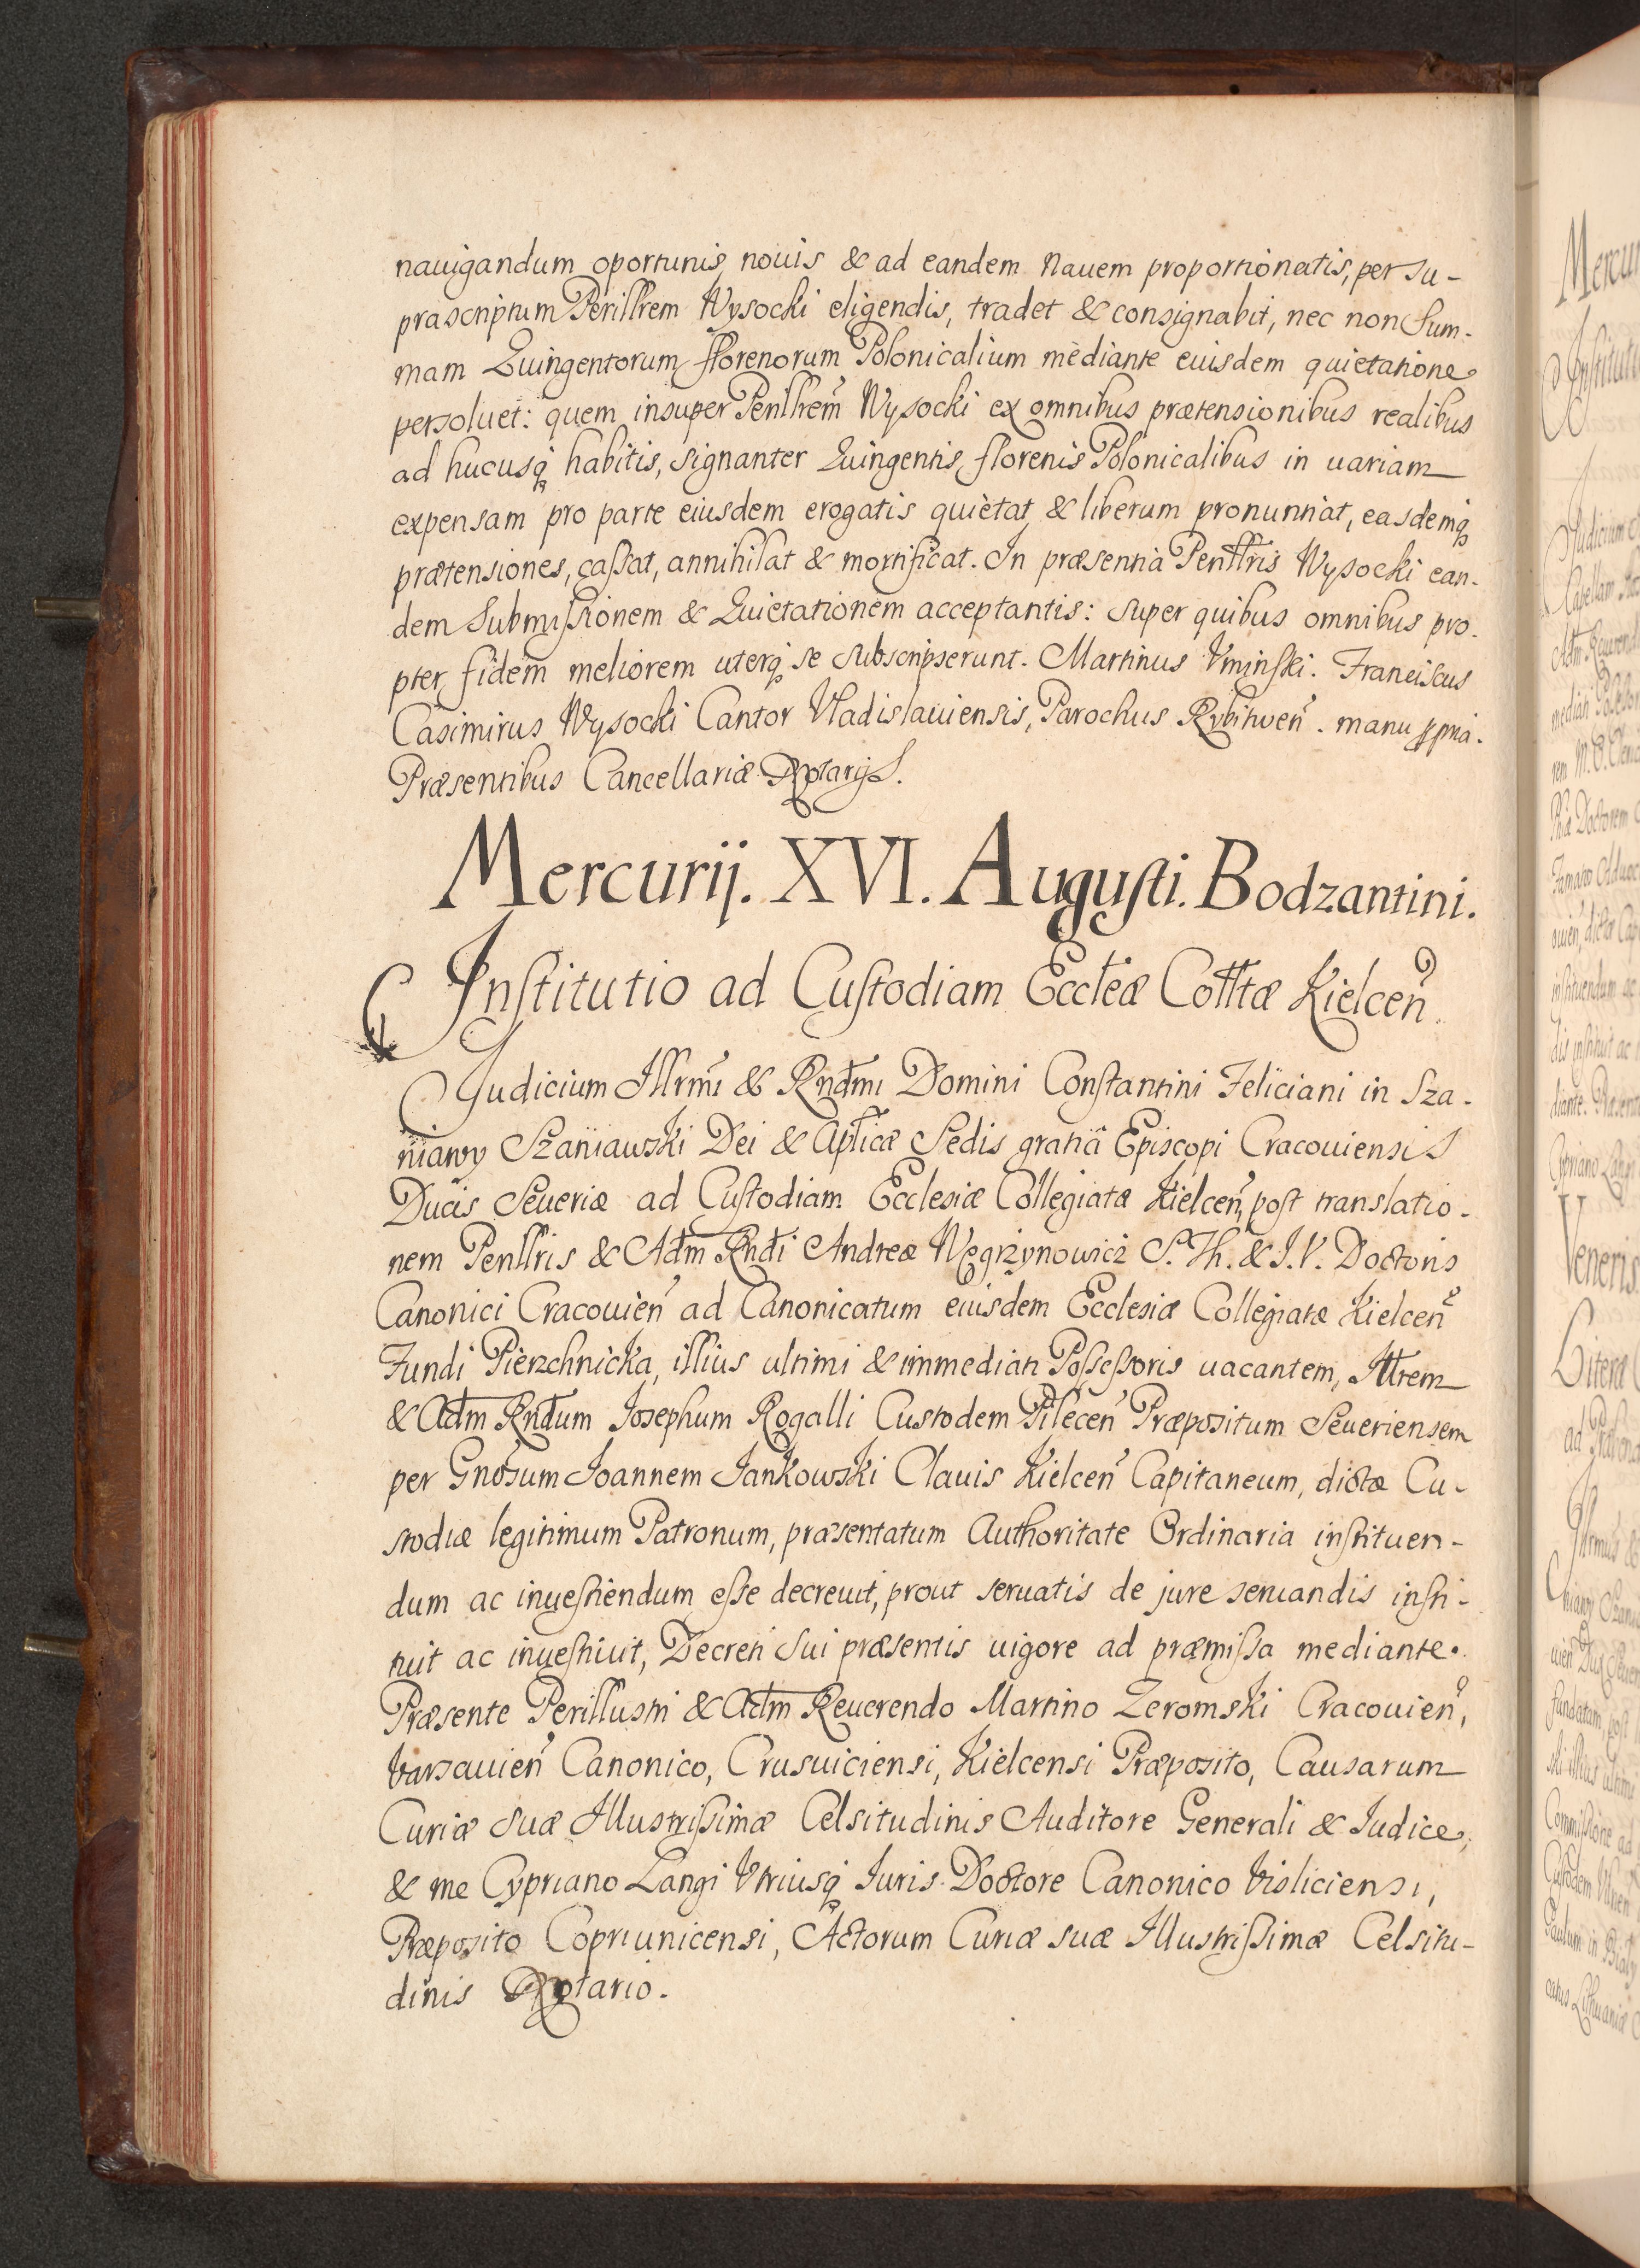 nauigandum oportunis nouis & ad eandem Nauem proportionatis, per su-
prascriptum Perillrem Wysocki eligendis, tradet & consignabit, nec non Sum-
mam Quingentorum florenorum Polonicalium mediante eiusdem quietatione
persoluet: quem insuper Perillrem Wysocki ex omnibus prætensionibus realibus
ad hucusq habitis, signanter Quingentis florenis Polonicalibus in uariam
expensam pro parte eiusdem erogatis quietat & liberum pronuntiat, easdemq
prætensiones, cassat, annihilat & mortificat. In præsentia Perillris Wysocki ean-
dem Submissionem & Quietationem acceptantis: super quibus omnibus pro-
pter fidem meliorem uterq se subscripserunt. Martinus Vminski. Franciscus
Casimirus Wysocki Cantor Vladislauiensis, Parochus Rybitwen. manu ppria.
Præsentibus Cancellariæ Notarijs.
Mercurij. XVI. Augusti. Bodzantini.
Institutio ad Custodiam Eccleæ Colltæ Kielcen.
Judicium Illrmi & Rndmi Domini Constantini Feliciani in Sza-
niawy Szaniawski Dei & Aplicæ Sedis gratiâ Episcopi Cracouiensis
Ducis Seueriæ ad Custodiam Ecclesiæ Collegiatæ Kielcen, post translatio-
nem Perillris & Adm Rndi Andreæ Węgrzynowicz S. Th. & I. V. Doctoris
Canonici Cracouien ad Canonicatum eiusdem Ecclesiæ Collegiatæ Kielcen
Fundi Pierzchnicka, illius ultimi & immediati Possessoris uacantem, Illrem
& Adm Rndum Josephum Rogalli Custodem Pilecen Præpositum Seueriensem
per Gnosum Joannem Jankowski Clauis Kielcen Capitaneum, dictæ Cu-
stodiæ legitimum Patronum, præsentatum Authoritate Ordinaria instituen-
dum ac inuestiendum esse decreuit, prout seruatis de jure seruandis insti-
tuit ac inuestiuit, Decreti sui præsentis uigore ad præmissa mediante.
Præsente Perillustri & Adm Reuerendo Martino Zeromski Cracouien,
Varsauien Canonico, Crusuiciensi, Kielcensi Præposito, Causarum
Curiæ suæ Illustrissimæ Celsitudinis Auditore Generali & Iudice,
& me Cypriano Langi Vtriusq Iuris Doctore Canonico Visliciensi,
Præposito Copriunicensi, Actorum Curiæ suæ Illustrissimæ Celsitu-
dinis Notario.